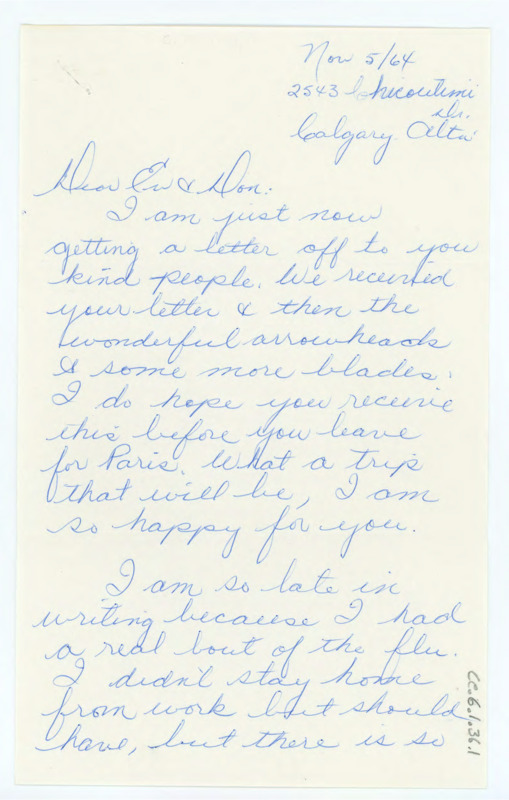 Nov 5/64
2543 Chicoutimi
Dr.
Calgary Alta
Dear Ev & Don:
I am just now
getting a letter off to you
kind people. We received
your letter & then the
wonderful arrowheads
& some more blades.
I do hope you receive
this before you leave
for Paris. What a trip
that will be, I am
so happy for you.
I am so late in
writing because I had
a real bout of the flu.
I didn't stay home
from work but should
have, but there is so
CC.6.1.36.1